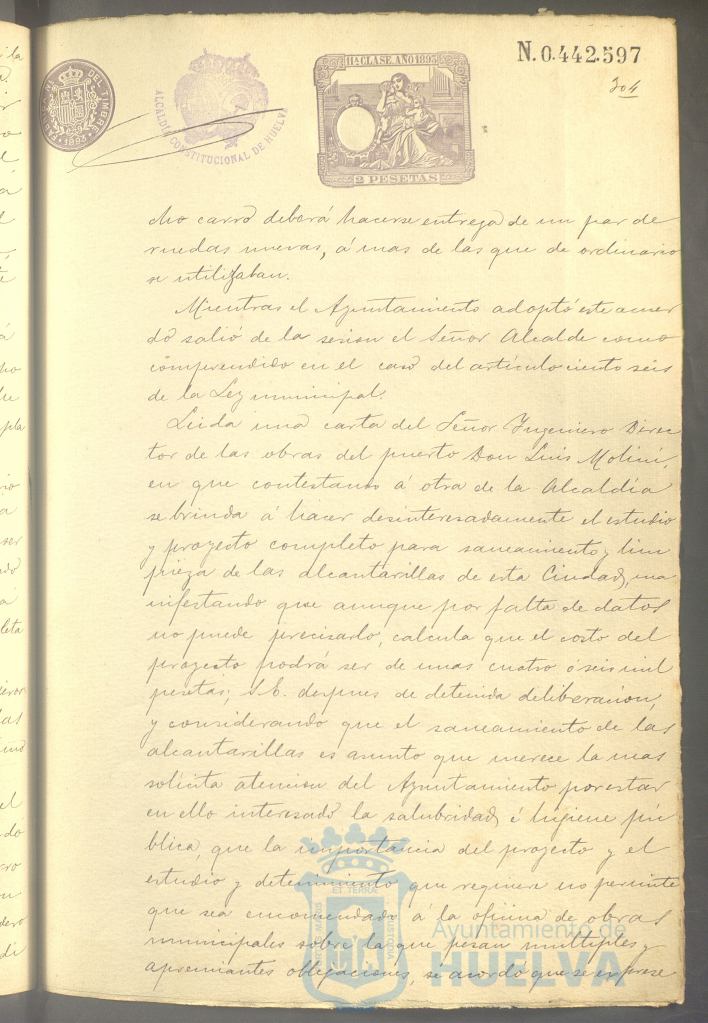 N. 0.442.597
304
11ª CLASE. AÑO 1893
2 PESETAS
DEL TIMBRE
1893
ALCALDÍA CONSTITUCIONAL DE HUELVA
cho carro deberá hacerse entrega de un par de
ruedas nuevas, á mas de las que de ordinario
se utilizaban.
Mientras el Ayuntamiento adoptó este acuer
do salió de la sesion el Señor Alcalde como
comprendido en el caso del artículo ciento seis
de la Ley municipal.
Leida una carta del Señor Ingeniero Direc
tor de las obras del puerto Don Luis Molini,
en que contestando á otra de la Alcaldía
se brinda á hacer desinteresadamente el estudio
y proyecto completo para saneamiento y lim
pieza de las alcantarillas de esta Ciudad, ma
nifestando que aunque por falta de datos
no puede precisarlo, calcula que el costo del
proyecto podrá ser de unas cuatro ó seis mil
pesetas; S. E. despues de detenida deliberacion,
y considerando que el saneamiento de las
alcantarillas es asunto que merece la mas
solicita atencion del Ayuntamiento por estar
en ello interesado la salubridad é higiene pú
blica, que la importancia del proyecto y el
estudio y detenimiento que requiere no permite
que sea encomendado á la oficina de obras
municipales sobre la que pesan multiples y
apremiantes obligaciones, se acordó que se exprese
Ayuntamiento de
HUELVA